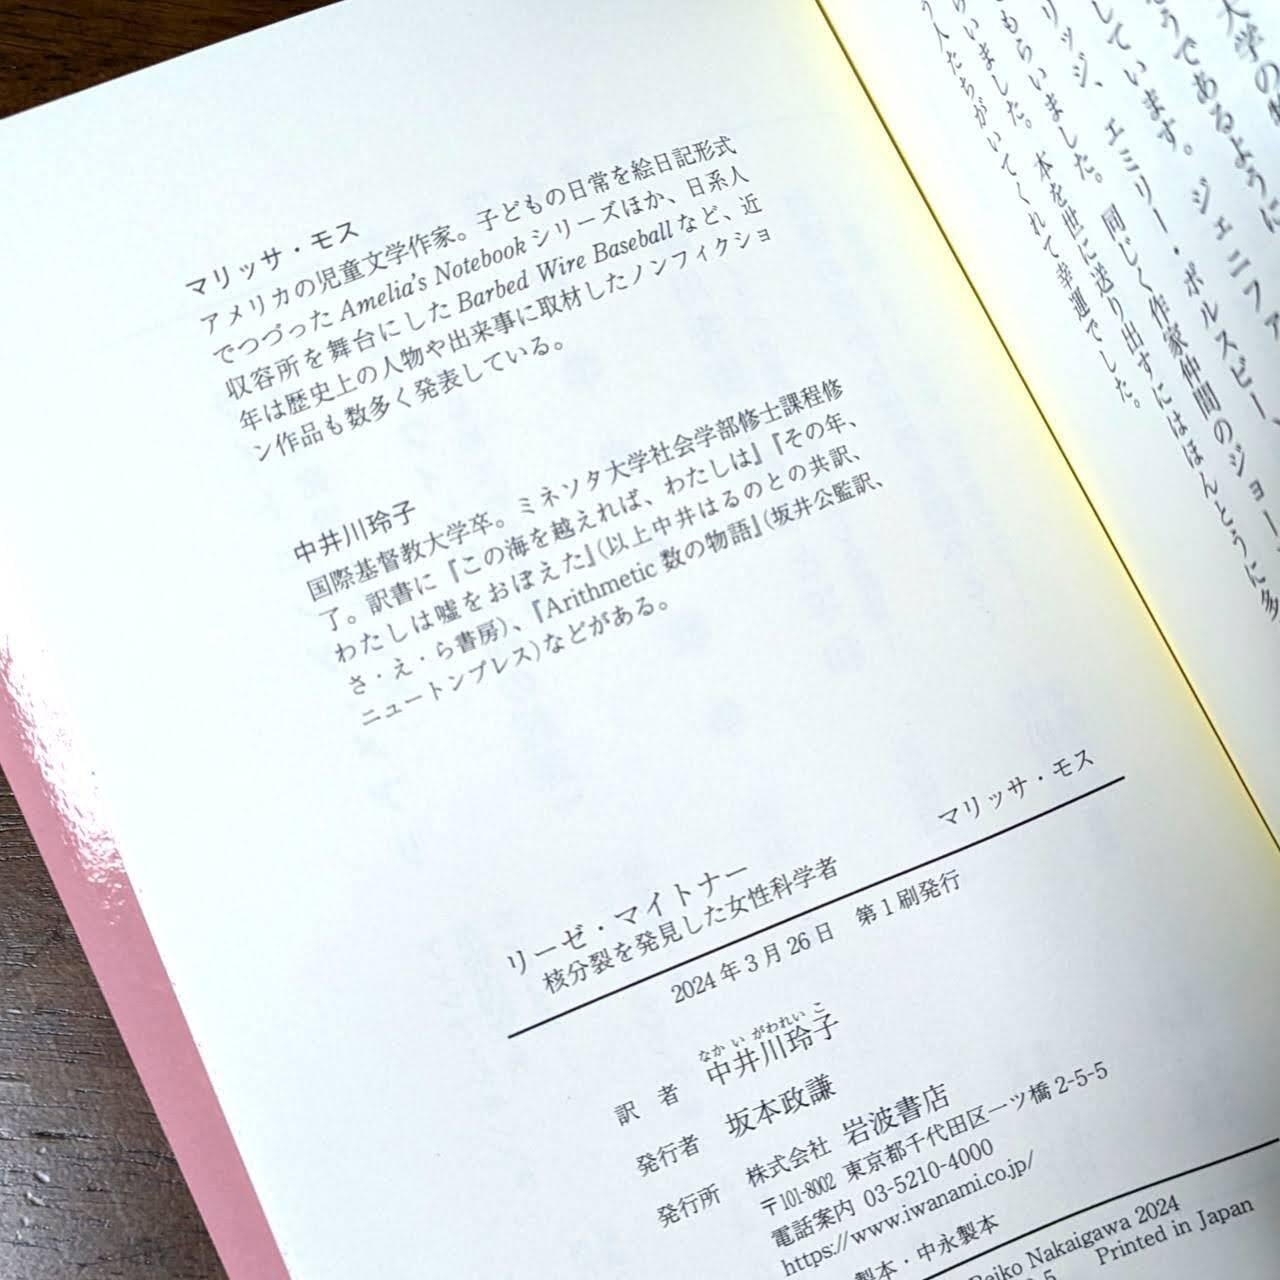 大学の
うであるように
しています。ジェニファ
リッジ、エミリー・ポルスビー、
もらいました。同じく作家仲間のジョー
いました。本を世に送り出すにはほんとうに多
う人たちがいてくれて幸運でした。
マリッサ・モス
アメリカの児童文学作家。子どもの日常を絵日記形式
でつづったAmelia's Notebookシリーズほか、日系人
収容所を舞台にしたBarbed Wire Baseballなど、近
年は歴史上の人物や出来事に取材したノンフィクショ
ン作品も数多く発表している。
中井川玲子
国際基督教大学卒。ミネソタ大学社会学部修士課程修
了。訳書に『この海を越えれば、わたしは』『その年、
わたしは嘘をおぼえた』(以上中井はるのとの共訳、
さ・え・ら書房)、『Arithmetic 数の物語』(坂井公監訳、
ニュートンプレス)などがある。
リーゼ・マイトナー
核分裂を発見した女性科学者
マリッサ・モス
2024年3月26日　第1刷発行
なかいがわれいこ
訳　者　中井川玲子
発行者　坂本政謙
発行所　株式会社 岩波書店
〒101-8002 東京都千代田区一ツ橋2-5-5
電話案内 03-5210-4000
https://www.iwanami.co.jp/
製本・中永製本
Reiko Nakaigawa 2024
Printed in Japan